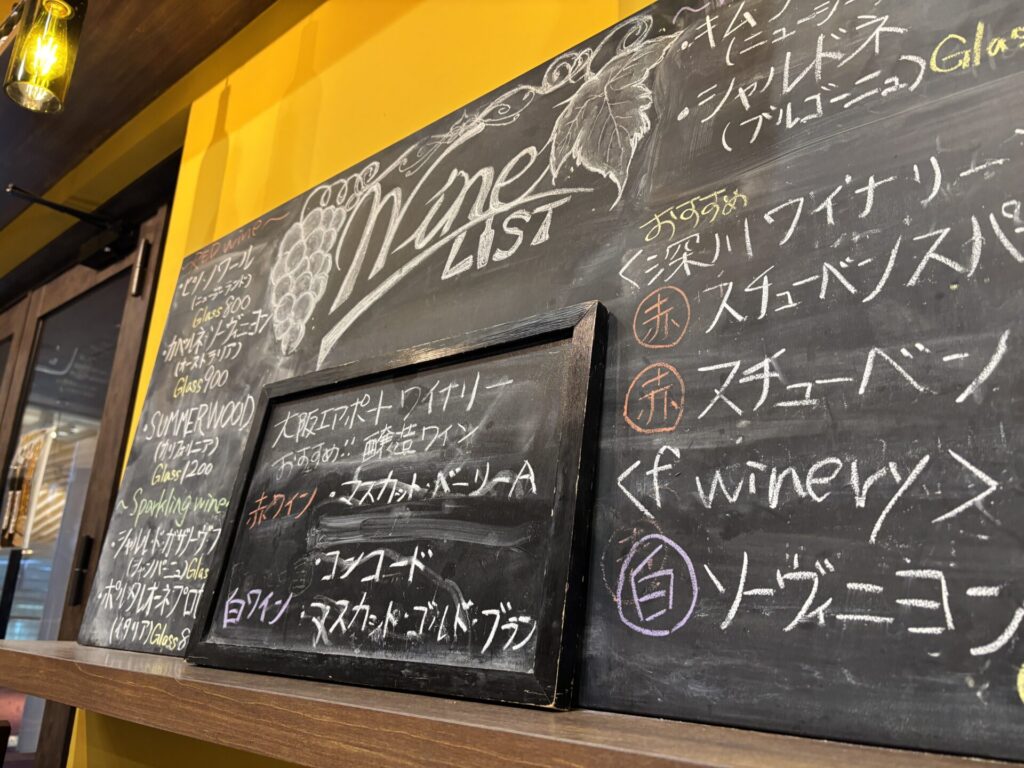 Wine
LIST
RED wine~
・ピノ・ノワール
(ニュージーランド)
Glass 800
・カベルネ・ソーヴィニヨン
(オーストラリア)
Glass 900
・SUMMERWOOD
(カリフォルニア)
Glass 1200
~Sparkling wine
(シャンパーニュ)Glas
(イタリア)Glass 8
大阪エアポートワイナリー
おすすめ!! 醸造ワイン
赤ワイン ・マスカット・ベーリーA
・コンコード
白ワイン ・マスカット・ゴルド・ブラン
・シャルドネ
(ブルゴーニュ) Glas
おすすめ
<深川ワイナリー
赤 スチューベンスパ
赤 スチューベン
<f winery>
白 ソーヴィニヨン